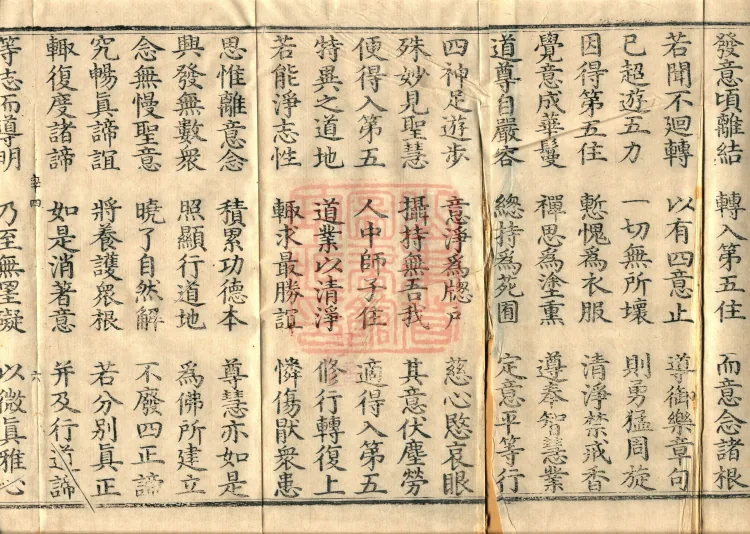 發意頃離結 轉入第五住 而意念諸根
若聞不迴轉 以有四意止 導御樂章句
已超遊五力 一切無所壞 則勇猛周旋
因得第五住 慙愧為衣服 清淨禁戒香
覺意成華鬘 禪思為塗熏 遵奉智慧業
道尊自嚴容 總持為苑囿 定意平等行
四神足遊步 意淨為牕戶 慈心愍哀眼
殊妙見聖慧 攝持無吾我 其意伏塵勞
便得入第五 人中師子住 適得入第五
特異之道地 道業以清淨 修行轉復上
若能淨志性 輙求最勝誼 憐傷厭衆患
思惟離意念 積累功德本 尊慧亦如是
興發無數衆 照顯行道地 為佛所建立
念無慢聖意 曉了自然解 不廢四正諦
究暢真諦誼 將養護衆根 若分別真正
輙復度諸諦 如是消著意 并及行道諦
等志而導明 乃至無罣礙 以微真雅心
四
六